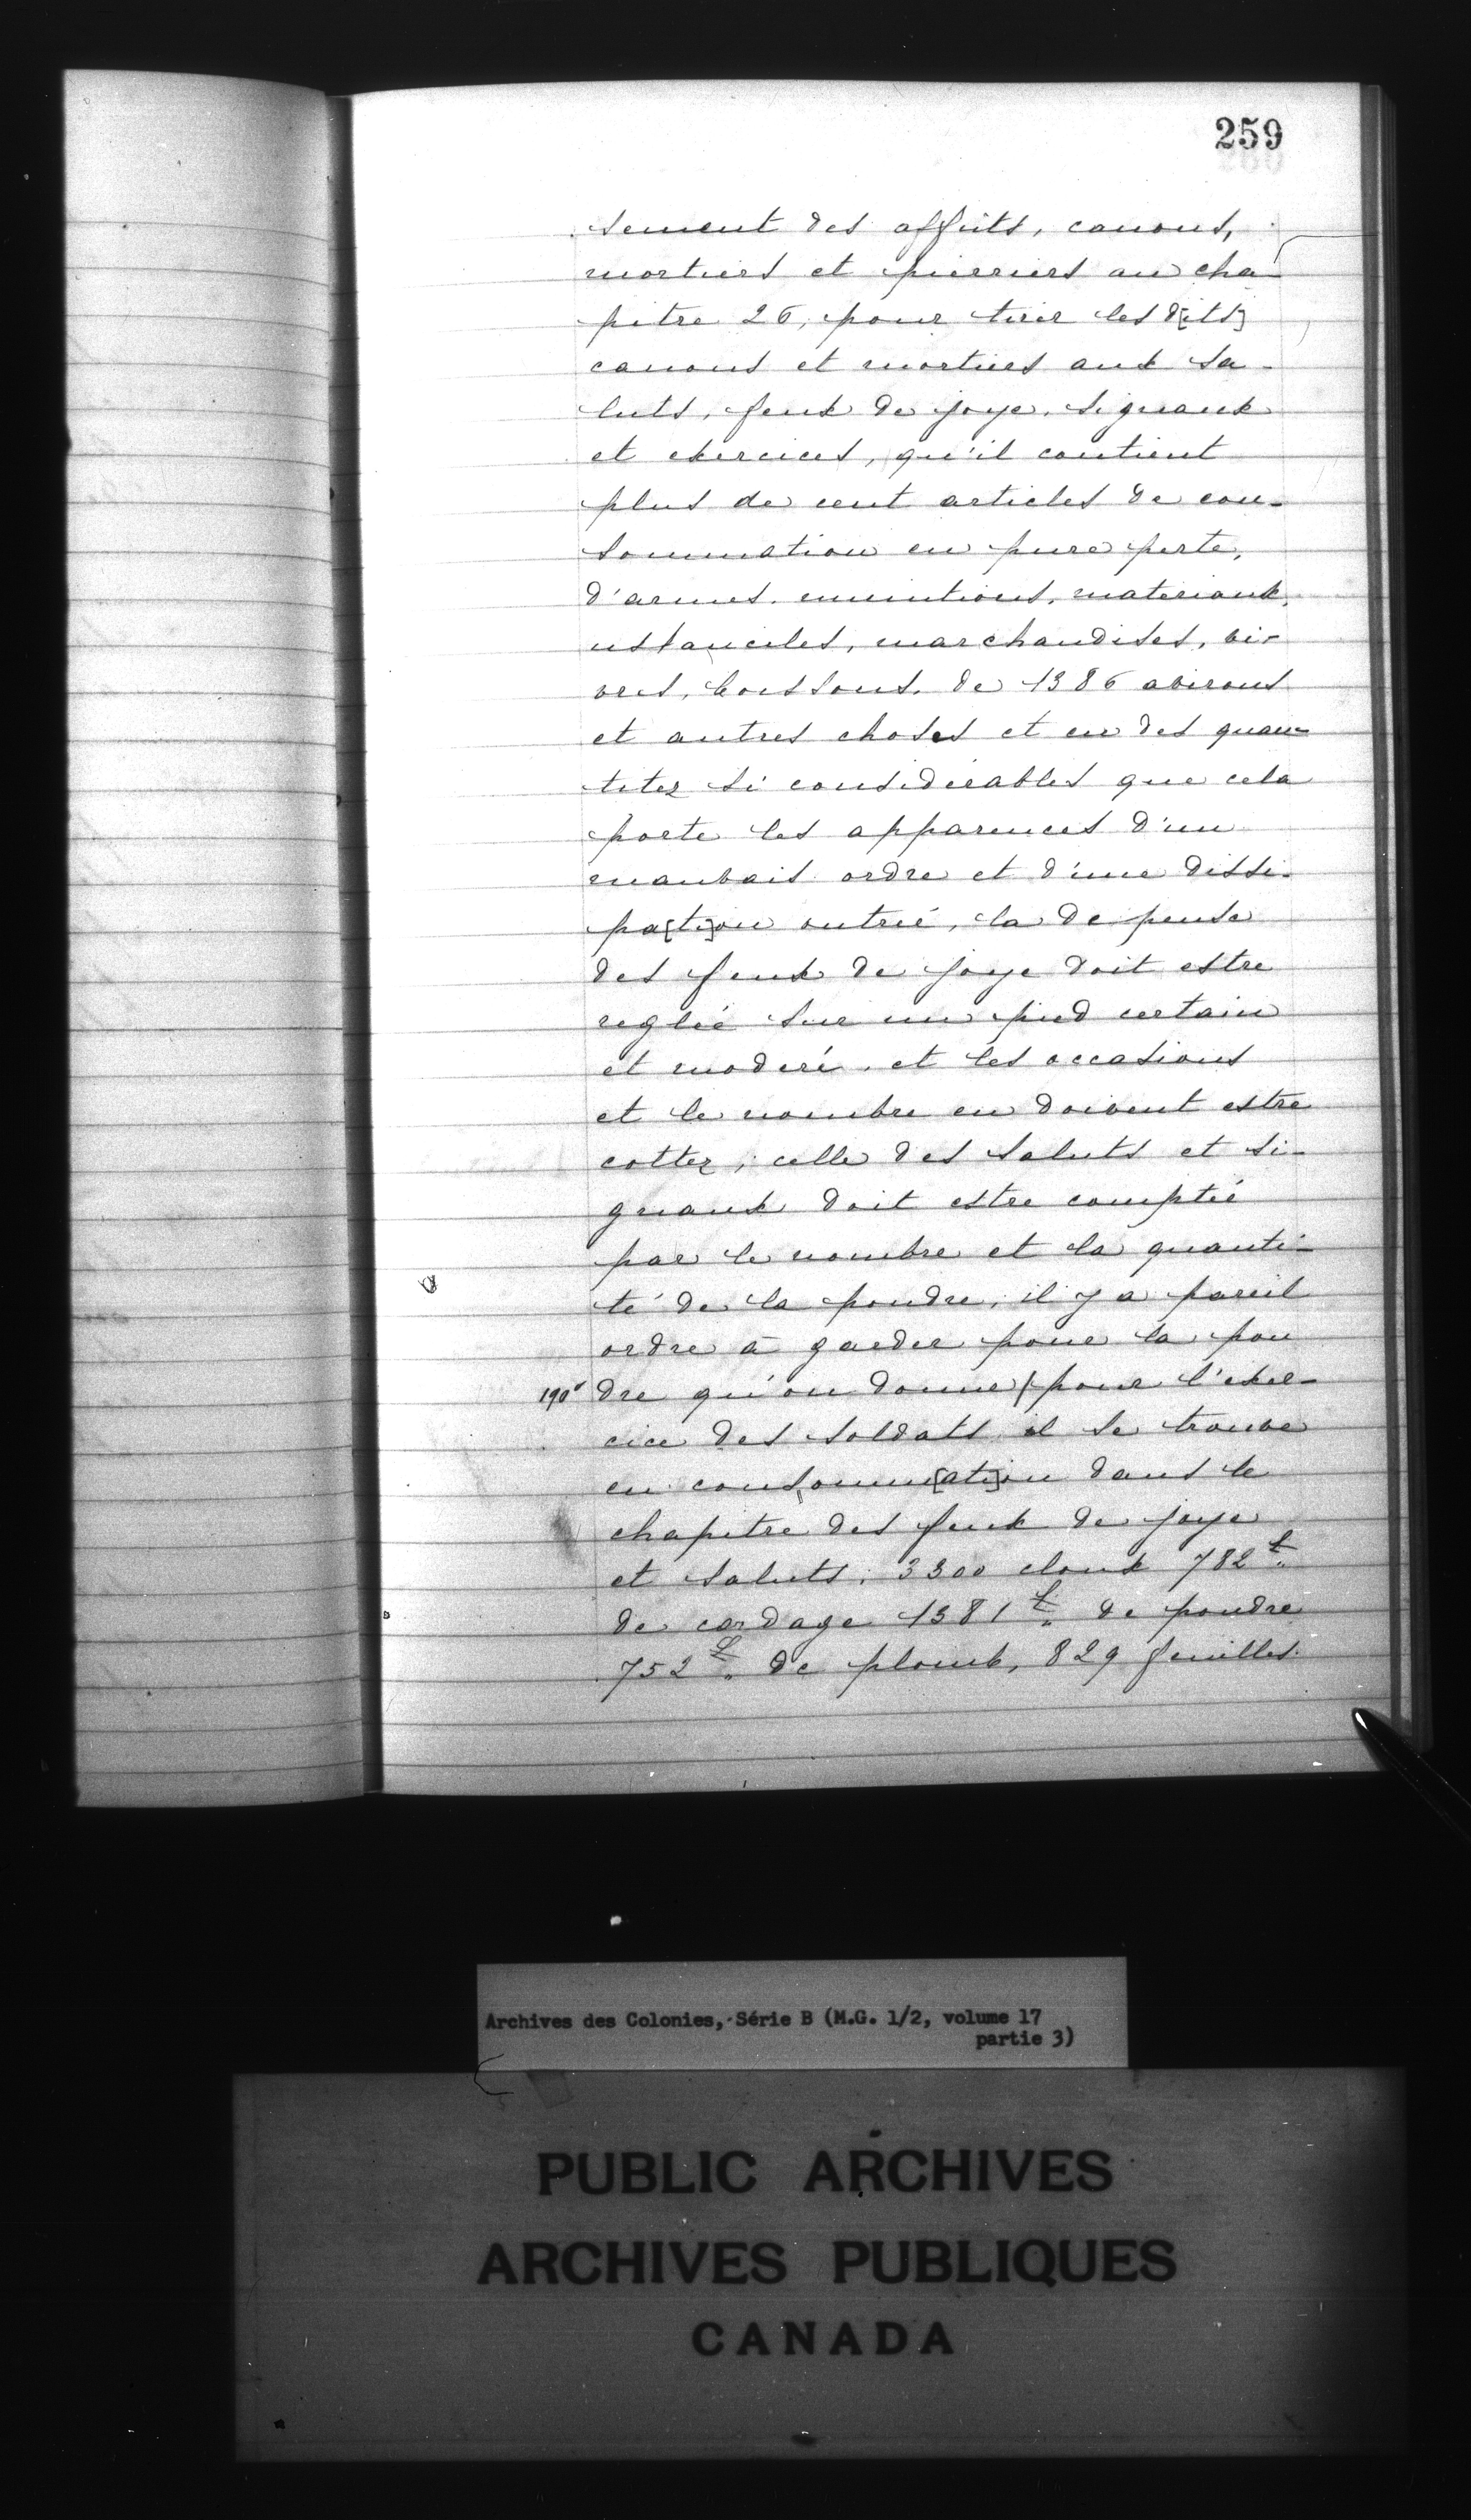 259
sement des affuts, canons,
mortiers et pierriers au cha-
pitre 26, pour tirer les d[its]
canons et mortiers aux sa-
luts, feux de joye, signaux
et exercices, qu'il contient
plus de cent articles de con-
sommation en pure perte,
d'armes, munitions, materiaux,
ustanciles, marchandises, vi-
vres, boissons, de 1386 avirons
et autres choses et en des quan-
titez si considérables que cela
porte les apparences d'un
mauvais ordre et d'une dissi-
pa[ti]on outrée, la depense
des feux de joye doit estre
reglée sur un pied certain
et moderé, et les occasions
et le nombre en doivent estre
cottez; celle des saluts et si-
gnaux doit estre comptée
par le nombre et la quanti-
té de la poudre, il y a pareil
ordre à garder pour la pou
190v dre qu'on donne/pour l'exer-
cice des soldats il se trouve
en consomm[ati]on dans le
chapitre des feux de joye
et saluts, 3300 cloux 782 ₶
de cordage 1381 ₶ de poudre
752 ₶ de plomb, 829 feuilles
Archives des Colonies, Série B (M.G. 1/2, volume 17
partie 3)
PUBLIC ARCHIVES
ARCHIVES PUBLIQUES
CANADA